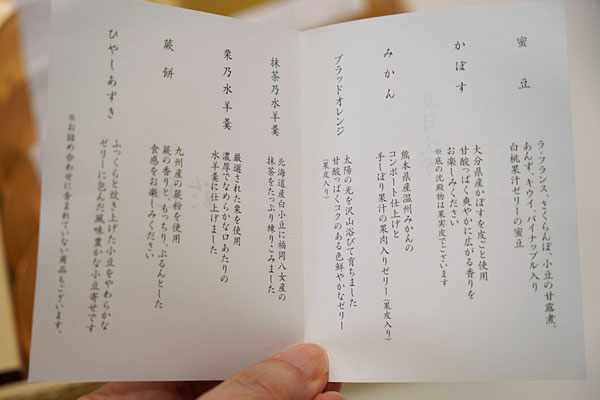 蜜豆
ラ・フランス、さくらんぼ、小豆の甘露煮、
あんず、キウイ、パイナップル入り
白桃果汁ゼリーの蜜豆
かぼす
大分県産かぼすを皮ごと使用
甘酸っぱく爽やかに広がる香りを
お楽しみください
※底の沈殿物は果実皮でございます
みかん
熊本県産温州みかんの
コンポート仕上げと
手しぼり果汁の果肉入りゼリー(果皮入り)
ブラッドオレンジ
太陽の光を沢山浴びて育ちました
甘酸っぱくコクのある色鮮やかなゼリー
(果皮入り)
抹茶乃水羊羹
北海道産白小豆に福岡八女産の
抹茶をたっぷり練りこみました
栗乃水羊羹
厳選された栗を使用
濃厚でなめらかな口あたりの
水羊羹に仕上げました
蕨餅
九州産の蕨粉を使用
蕨の香りと、もっちり、ぷるんとした
食感をお楽しみください
ひやしあずき
ふっくらと炊き上げた小豆をやわらかな
ゼリーに包んだ風味豊かな小豆寄せです
※お詰め合わせに含まれていない商品もございます。